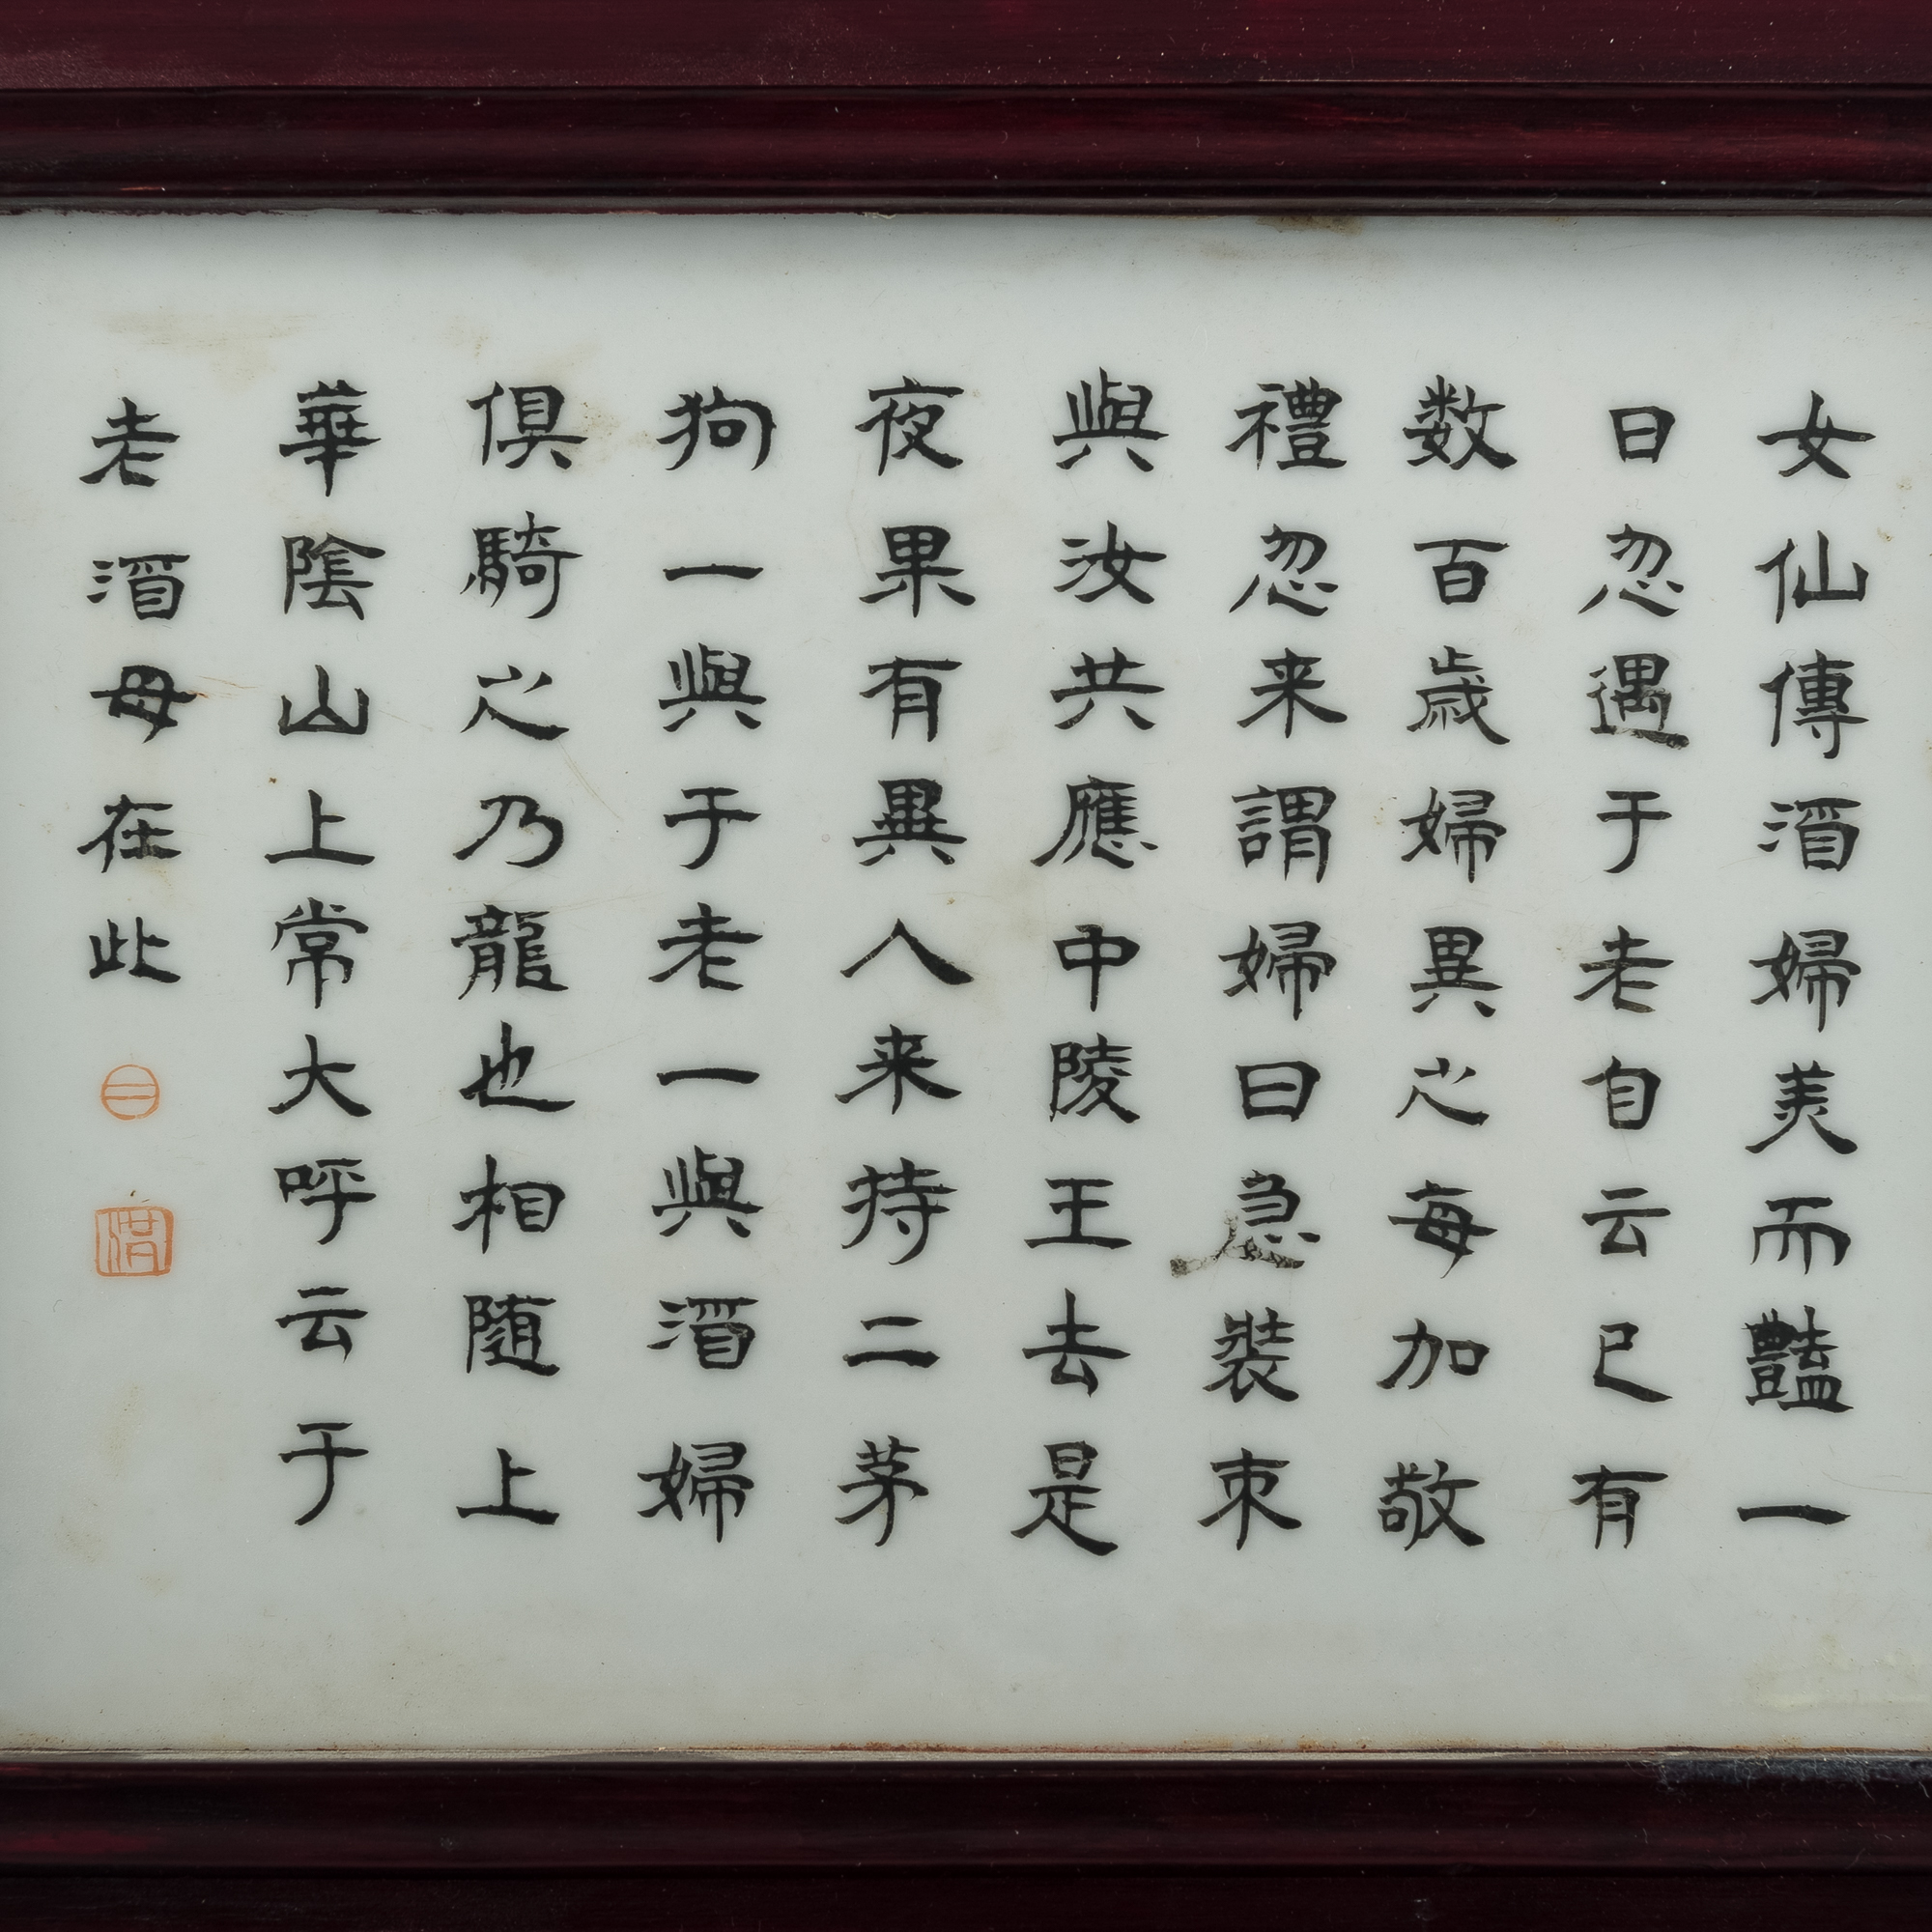 女仙傳酒婦美而豔一
日忽遇于老自云已有
数百歳婦異之每加敬
禮忽来謂婦曰急裝束
與汝共應中陵王去是
夜果有異人来持二茅
狗一與于老一與酒婦
俱騎之乃龍也相随上
華陰山上常大呼云于
老酒母在此